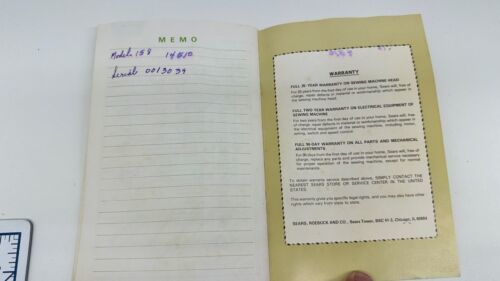 MEMO
Model: 158
Serial: 0013039
WARRANTY
FULL 25-YEAR WARRANTY ON SEWING MACHINE HEAD
For 25 years from the first day of use in your home, Sears will, free of
charge, repair defects in material or workmanship which appear in
the sewing machine head.
FULL TWO YEAR WARRANTY ON ELECTRICAL EQUIPMENT OF
SEWING MACHINE
For two years from the first day of use in your home, Sears will, free
of charge, repair defects in material or workmanship which appear in
the electrical equipment of the sewing machine, including motor,
wiring, switch and speed control.
FULL 90-DAY WARRANTY ON ALL PARTS AND MECHANICAL
ADJUSTMENTS
For 90 days from the first day of use in your home, Sears will, free of
charge, replace any parts and provide mechanical service necessary
for proper operation of the sewing machine, except for normal
maintenance.
To obtain warranty service described above, SIMPLY CONTACT THE
NEAREST SEARS STORE OR SERVICE CENTER IN THE UNITED
STATES.
This warranty gives you specific legal rights, and you may also have other
rights which vary from state to state.
SEARS, ROEBUCK AND CO., Sears Tower, BSC 41-3, Chicago, IL 60684